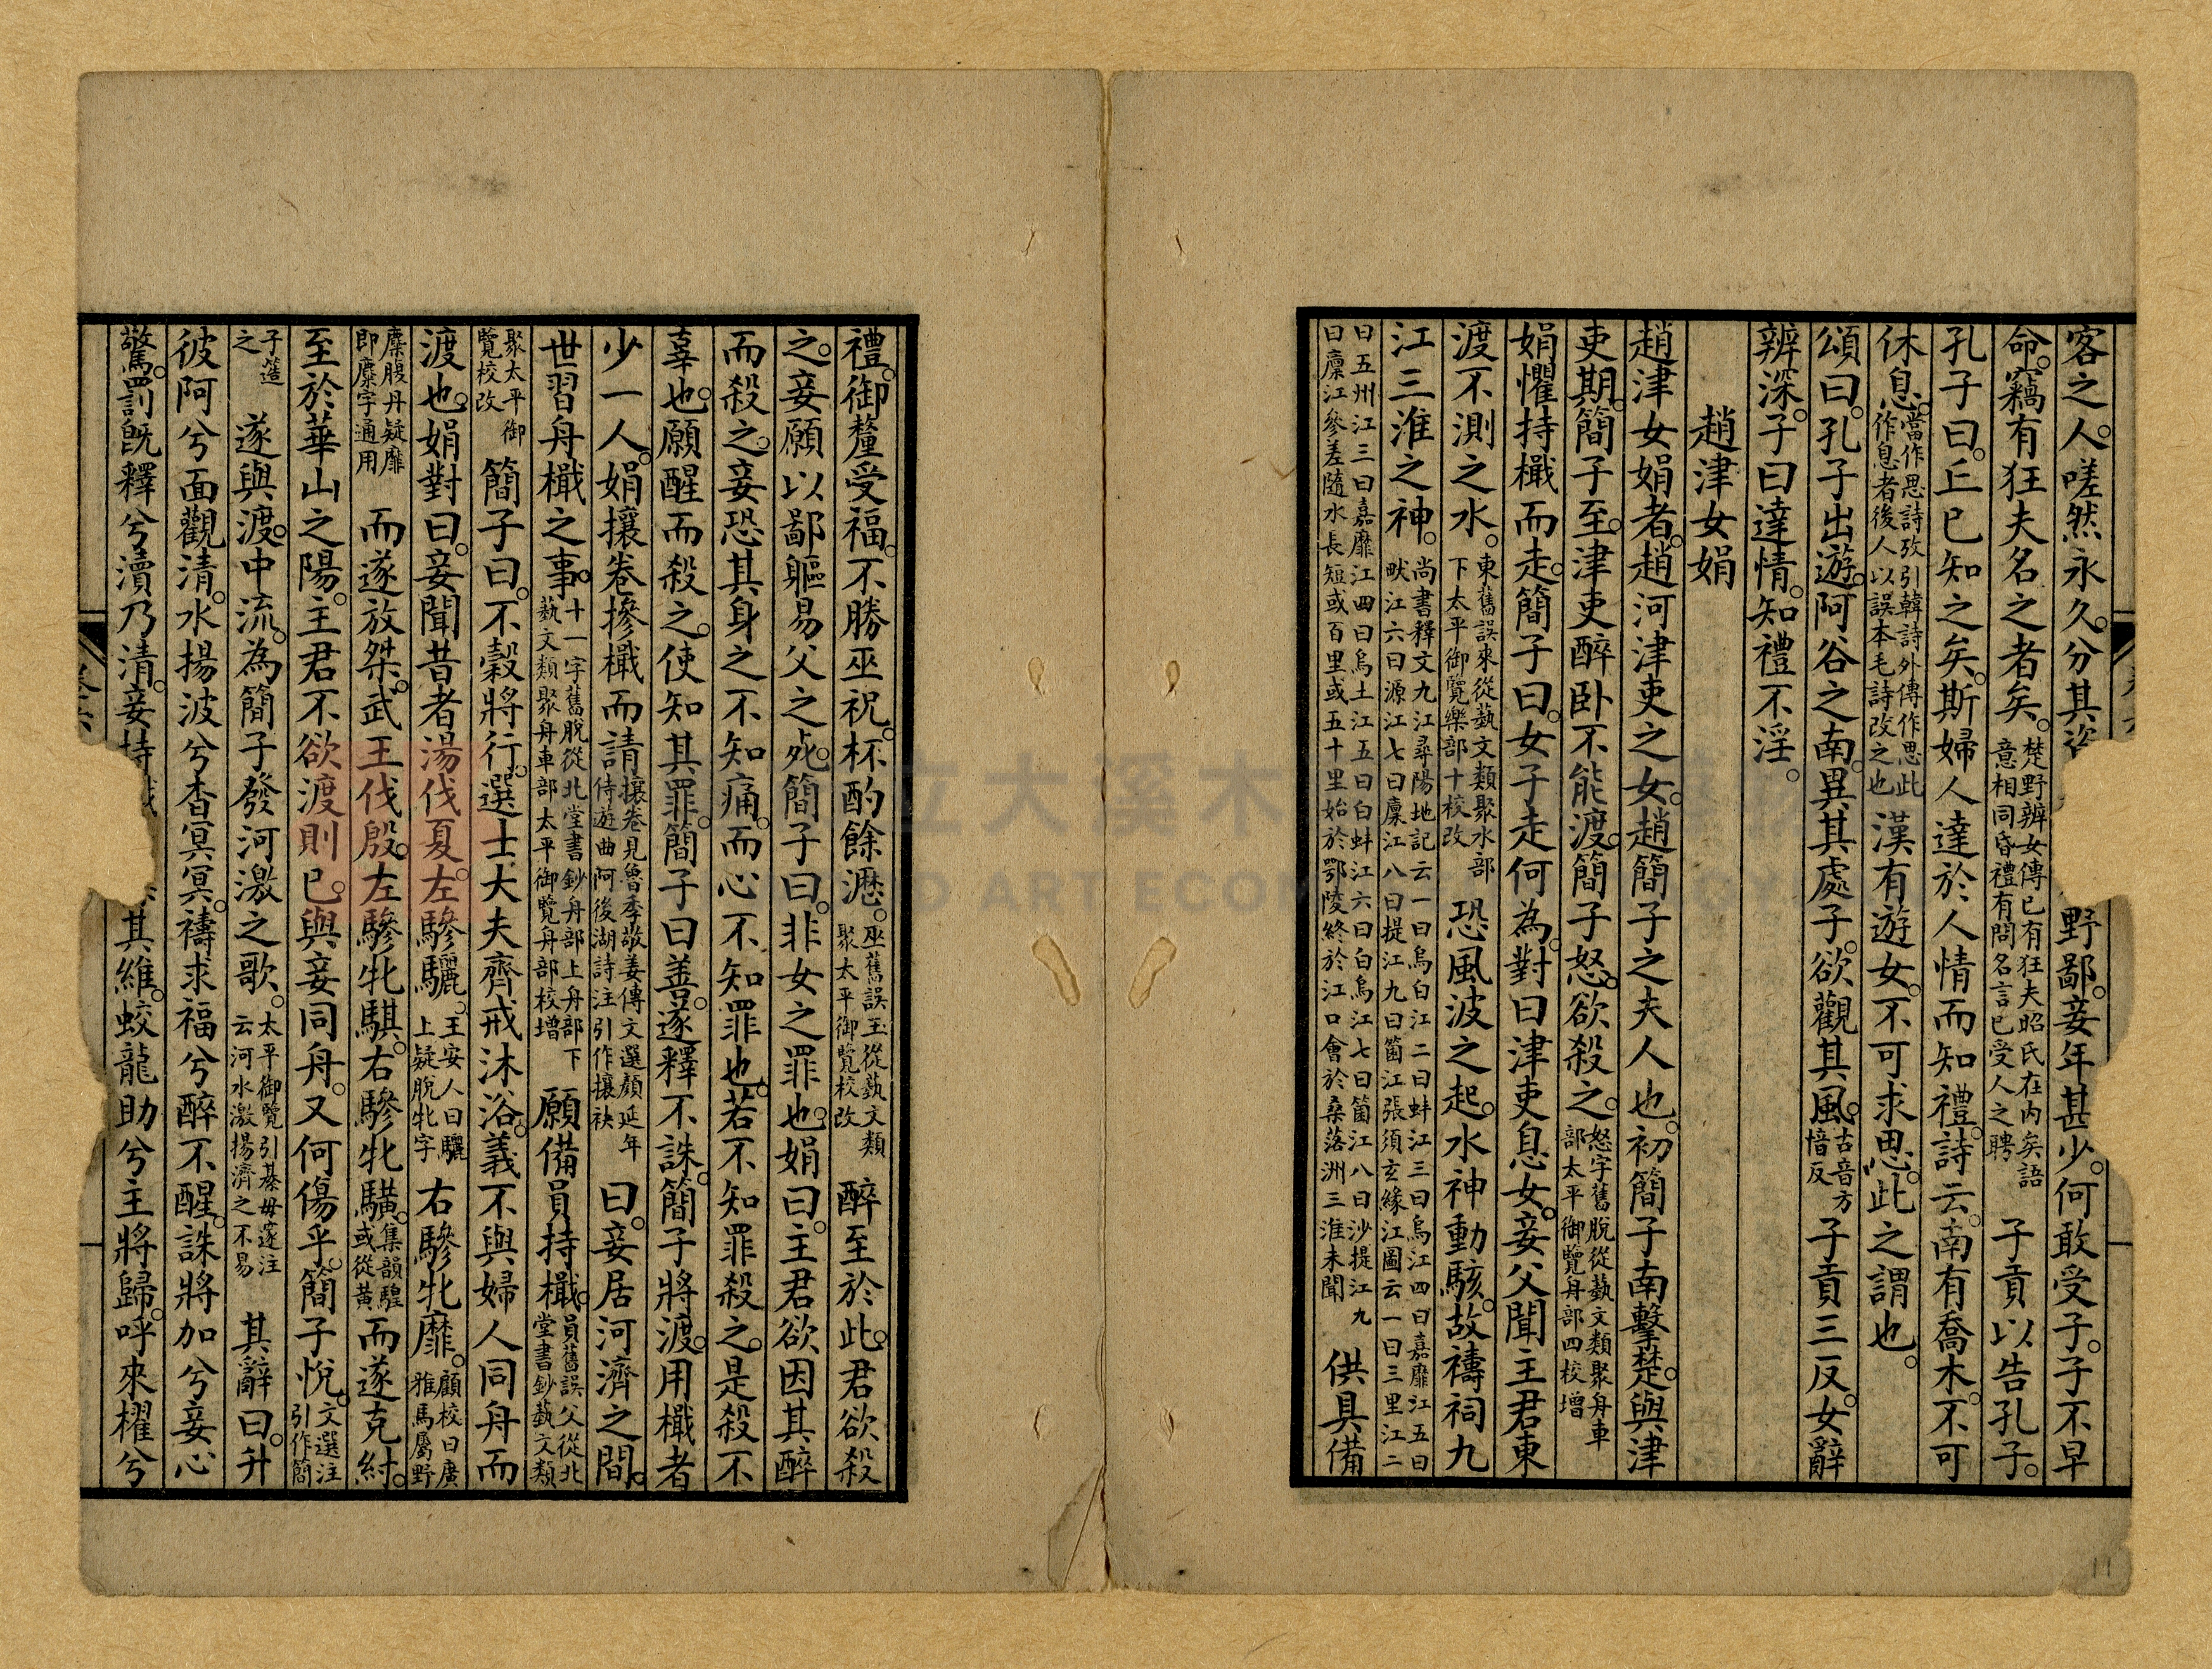 客之人嗟然永久分其資野鄙妾年甚少何敢受子子不早
命竊有狂夫名之者矣楚野辨女傳已有狂夫昭氏在內矣語意相同昏禮有問名言已受人之聘子貢以告孔子
孔子曰丘已知之矣斯婦人達於人情而知禮詩云南有喬木不可
休息當作思詩攷引韓詩外傳作思此作息者後人以誤本毛詩改之也漢有遊女不可求思此之謂也
頌曰孔子出遊阿谷之南異其處子欲觀其風古音方愔反子貢三反女辭
辨深子曰達情知禮不淫
趙津女娟
趙津女娟者趙河津吏之女趙簡子之夫人也初簡子南擊楚與津
吏期簡子至津吏醉卧不能渡簡子怒欲殺之怒字舊脫從藝文類聚舟車部太平御覽舟部四校增
娟懼持檝而走簡子曰女子走何為對曰津吏息女妾父聞主君東
渡不測之水東舊誤來從藝文類聚水部下太平御覽樂部十校改恐風波之起水神動駭故禱祠九
江三淮之神尚書釋文九江尋陽地記云一曰烏白江二曰蚌江三曰烏江四曰嘉靡江五曰畎江六曰源江七曰廩江八曰提江九曰箇江張須玄緣江圖云一曰三里江二
曰五州江三曰嘉靡江四曰烏土江五曰白蚌江六曰白烏江七曰箇江八曰沙提江九曰廩江參差隨水長短或百里或五十里始於鄂陵終於江口會於桑落洲三淮未聞供具備
禮御釐受福不勝巫祝杯酌餘瀝巫舊誤玉從藝文類聚太平御覽校改醉至於此君欲殺
之妾願以鄙軀易父之死簡子曰非女之罪也娟曰主君欲因其醉
而殺之妾恐其身之不知痛而心不知罪也若不知罪殺之是殺不
辜也願醒而殺之使知其罪簡子曰善遂釋不誅簡子將渡用檝者
少一人娟攘卷摻檝而請攘卷見魯季敬姜傳文選顏延年侍遊曲阿後湖詩注引作攘袂曰妾居河濟之間
世習舟檝之事十一字舊脫從北堂書鈔舟部上舟部下藝文類聚舟車部太平御覽舟部校增願備員持檝員舊誤父從北堂書鈔藝文類
聚太平御覽校改簡子曰不穀將行選士大夫齊戒沐浴義不與婦人同舟而
渡也娟對曰妾聞昔者湯伐夏左驂驪王安人曰驪上疑脫牝字右驂牝靡顧校曰廣雅馬屬野
麋腹丹疑靡即麋字通用而遂放桀武王伐殷左驂牝騏右驂牝騜集韻騜或從黃而遂克紂
至於華山之陽主君不欲渡則已與妾同舟又何傷乎簡子悅文選注引作簡
子箴之遂與渡中流為簡子發河激之歌太平御覽引綦毋邃注云河水激揚濟之不易其辭曰升
彼阿兮面觀清水揚波兮杳冥冥禱求福兮醉不醒誅將加兮妾心
驚罰既釋兮瀆乃清妾持其維蛟龍助兮主將歸呼來櫂兮